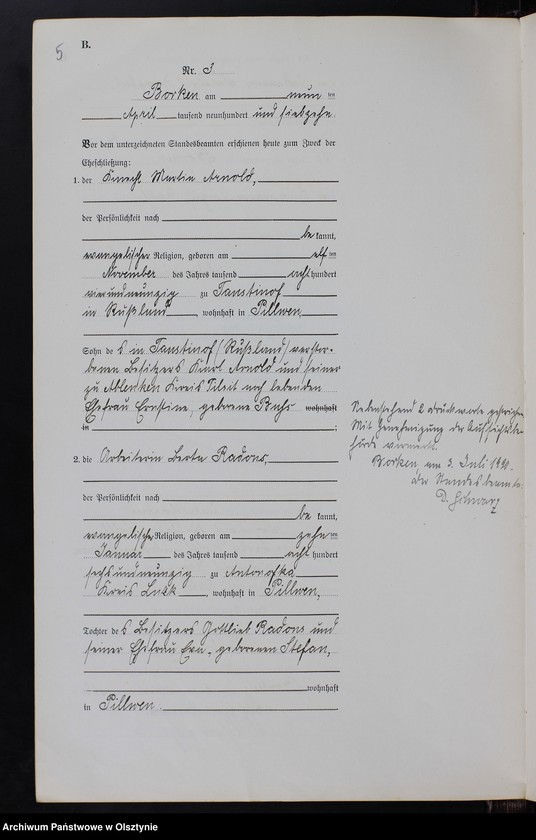 5
B.
Nr. 3
Borken am neun ten
April tausend neunhundert und siebzehn.
Vor dem unterzeichneten Standesbeamten erschienen heute zum Zweck der
Eheschließung:
1. der Knecht Martin Arnold,
der Persönlichkeit nach
be kannt,
evangelischer Religion, geboren am elf ten
November des Jahres tausend acht hundert
vierundneunzig zu Faustinof
in Rußland, wohnhaft in Pillwen
Sohn des in Faustinof (Rußland) verstor-
benen Besitzers Arnold und seiner
zu Ablenken Kreis Tilsit noch lebenden
Ehefrau Ernstine, geborene wohnhaft
in ;
2. die Arbeiterin Berta Radons,
der Persönlichkeit nach
be kannt,
evangelische Religion, geboren am zehn ten
Januar des Jahres tausend acht hundert
sechsundneunzig zu Antonofka
Kreis Luzk, wohnhaft in Pillwen,
Tochter des Besitzers Gottlieb Radons und
seiner Ehefrau Eva, geborenen Stefan,
wohnhaft
in Pillwen.
Nebenstehend 2 Druckworte gestrichen
Mit Genehmigung der Aufsichtsbe-
hörde vermerkt.
Borken, am 3. Juli 19
Der Standesbeamte
D. Schwarz
Archiwum Państwowe w Olsztynie